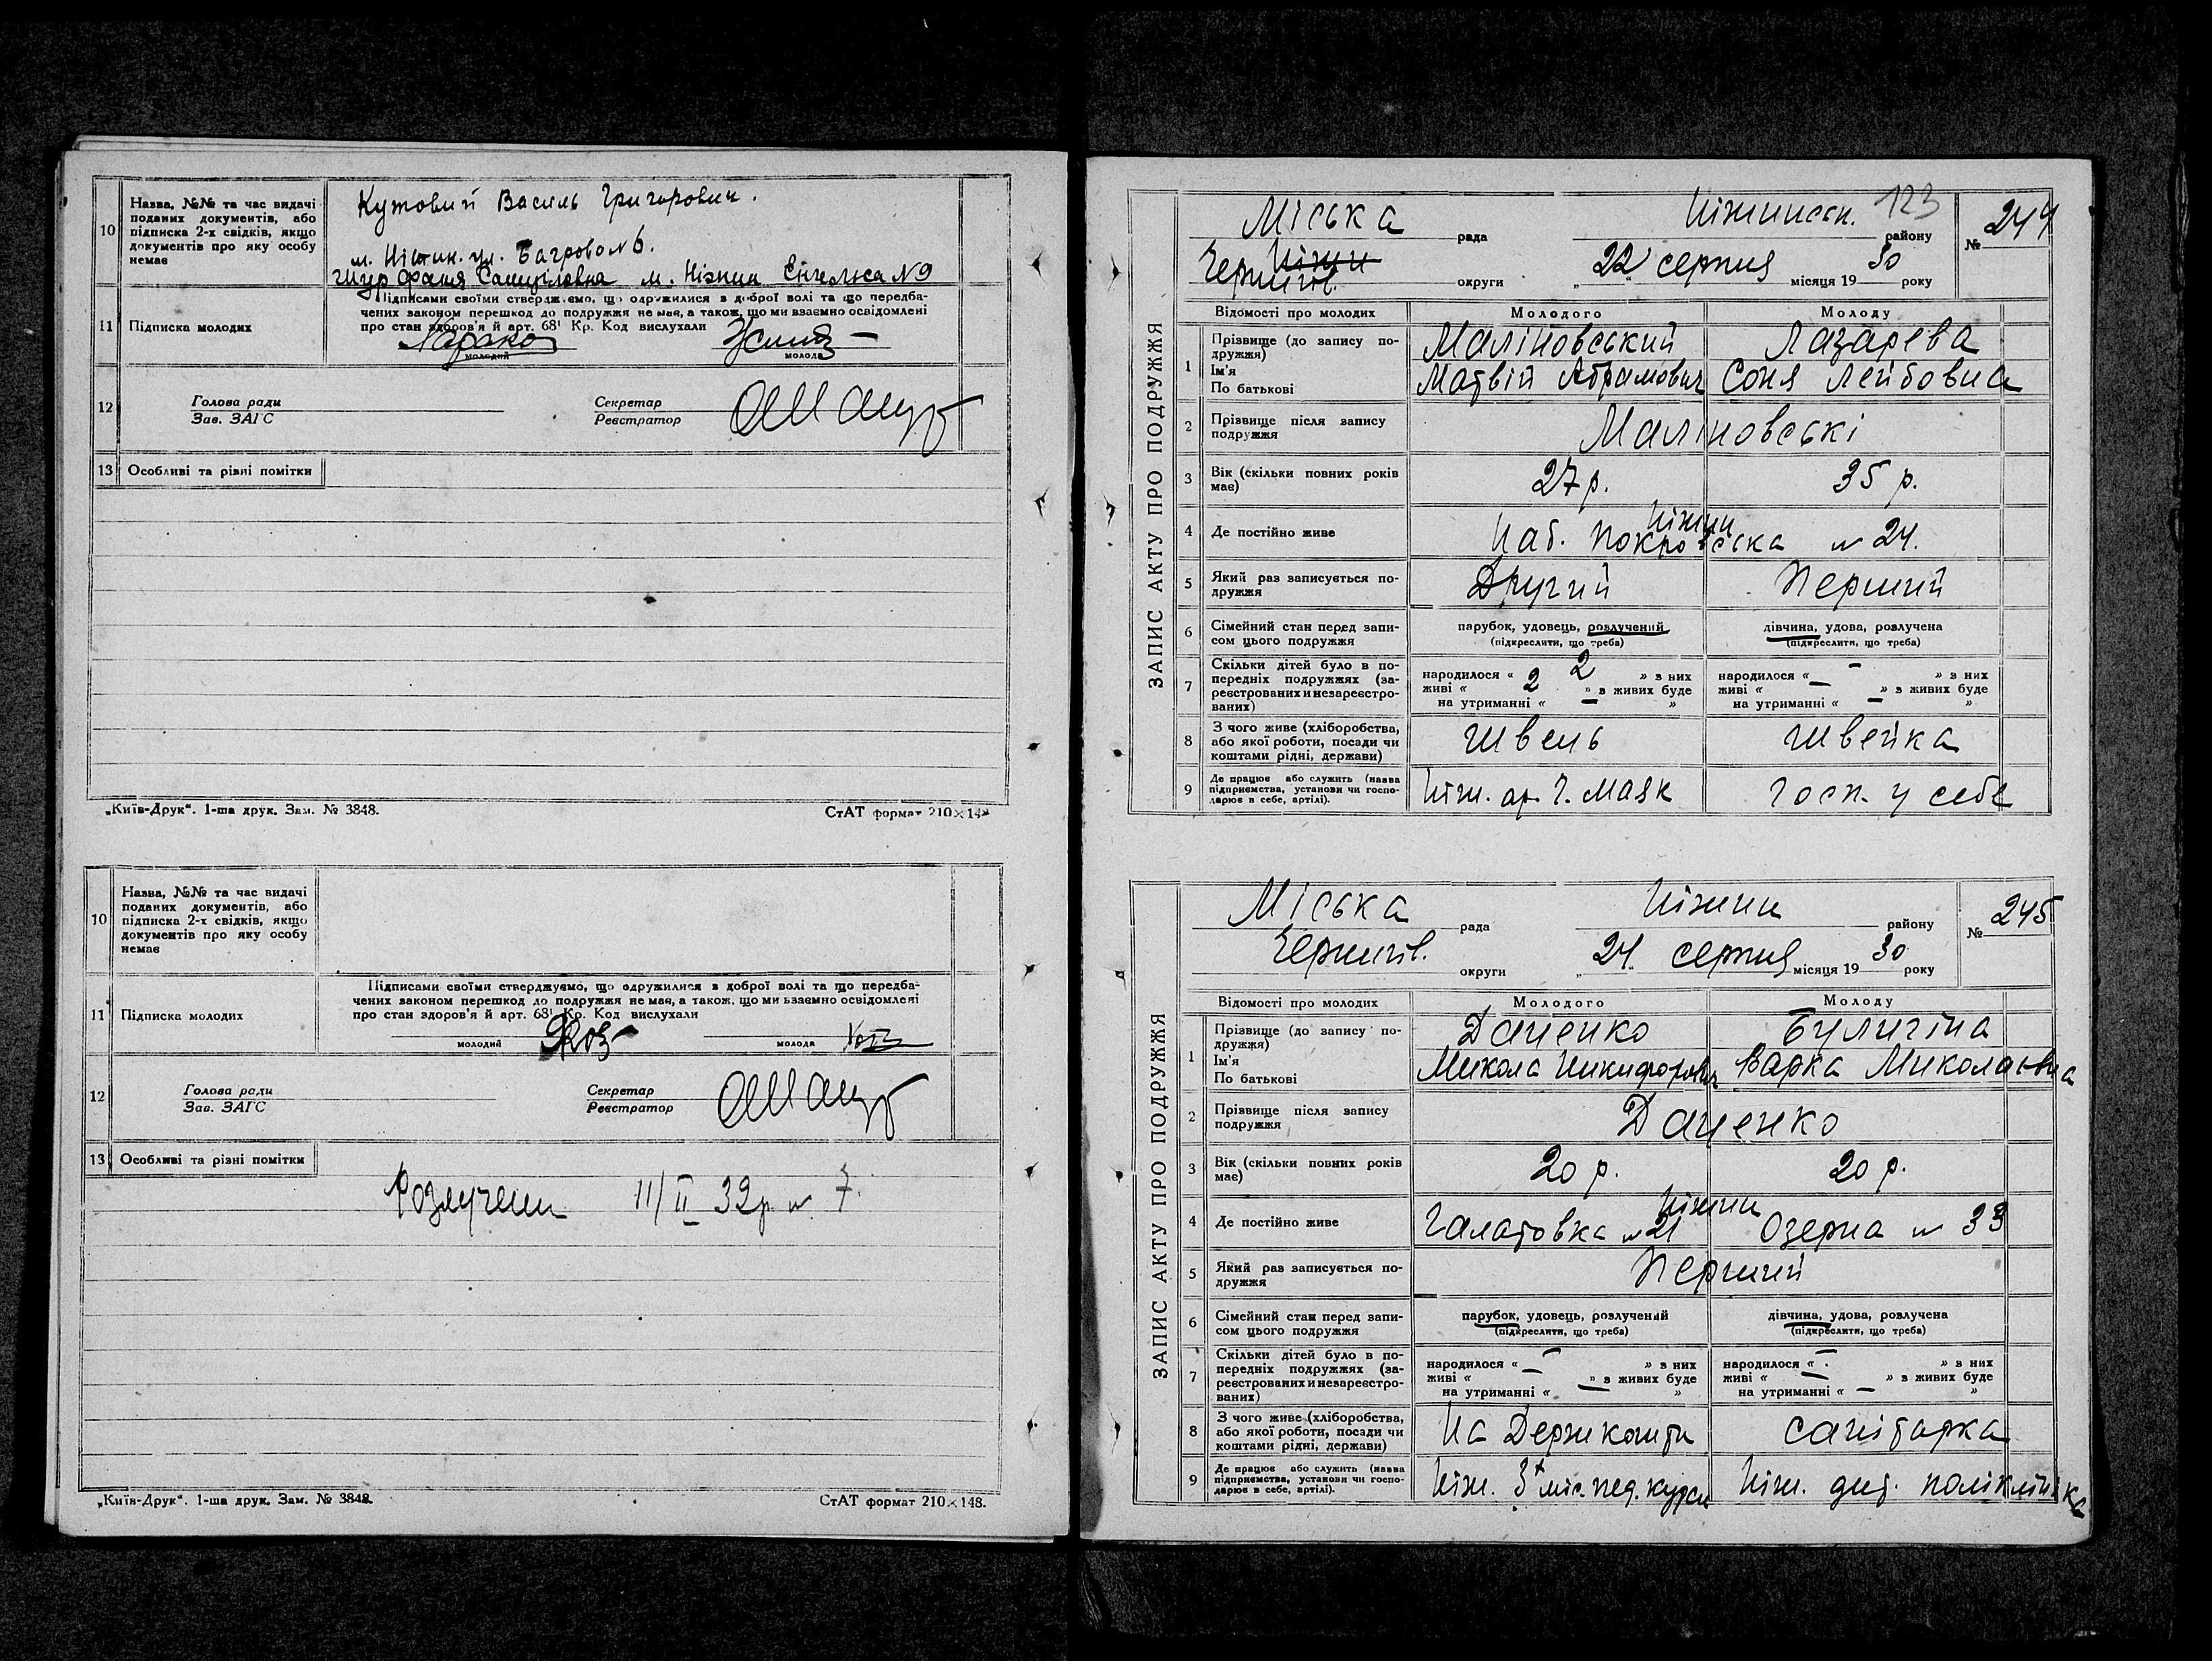 10 Назва, №№ та час видачі поданих документів, або підписка 2-х свідків, якщо документів про яку особу немає
Кутовий Василь Григорович.
м. Ніжин. ул. Багрова № 6.
Шур Фаня Самуіловна м. Ніжин Енгельса № 9
11 Підписка молодих
Підписами своїми стверджуємо, що одружилися з доброї волі та що передба-
чених законом перешкод до подружжя не має, а також, що ми взаємно освідомлені
про стан здоров'я й арт. 68¹ Кр. Код вислухали
молодий молода
12 Голова ради Секретар
Зав. ЗАГС Реєстратор
13 Особливі та різні помітки
„Київ-Друк“. 1-ша друк. Зам. № 3848. СтАТ формат 210×148
10 Назва, №№ та час видачі поданих документів, або підписка 2-х свідків, якщо документів про яку особу немає
11 Підписка молодих
Підписами своїми стверджуємо, що одружилися з доброї волі та що передба-
чених законом перешкод до подружжя не має, а також, що ми взаємно освідомлені
про стан здоров'я й арт. 68¹ Кр. Код вислухали
молодий молода
12 Голова ради Секретар
Зав. ЗАГС Реєстратор
13 Особливі та різні помітки
Розлучени 11/II 32р. № 7.
„Київ-Друк“. 1-ша друк. Зам. № 3848. СтАТ формат 210×148.
123
ЗАПИС АКТУ ПРО ПОДРУЖЖЯ
Міська рада Ніжинськ. району № 244
Ніжин
Чернигів. округи „22“ серпня місяця 1930 року
Відомості про молодих Молодого Молоду
1 Прізвище (до запису по-
дружжя) Маліновський Лазарева
Ім'я
По батькові Матвій Абрамович Соня Лейбовна
2 Прізвище після запису
подружжя Маліновські
3 Вік (скільки повних років
має) 27 р. 35 р.
Ніжин
4 Де постійно живе Наб. Покровська № 24.
5 Який раз записується по-
дружжя Другий Перший
6 Сімейний стан перед запи-
сом цього подружжя парубок, удовець, розлучений дівчина, удова, розлучена
(підкреслити, що треба) (підкреслити, що треба)
7 Скільки дітей було в по-
передніх подружжях (за-
реєстрованих и незареєстро-
ваних)
народилося « 2 » з них народилося « – » з них
живі « 2 » з живих буде живі « – » з живих буде
на утриманні « – » на утриманні « – »
8 З чого живе (хліборобства,
або якої роботи, посади чи
коштами рідні, держави) Швець Швейка
9 Де працює або служить (назва
підприємства, установи чи госпо-
дарює в себе, артілі). Ніж. ар. Ч. Маяк Госп. у себе
ЗАПИС АКТУ ПРО ПОДРУЖЖЯ
Міська рада Ніжин району № 245
Чернигів. округи „24“ серпня місяця 1930 року
Відомості про молодих Молодого Молоду
1 Прізвище (до запису по-
дружжя) Даценко Булигіна
Ім'я
По батькові Микола Никифорович Варка Миколаівна
2 Прізвище після запису
подружжя Даценко
3 Вік (скільки повних років
має) 20 р. 20 р.
Ніжин
4 Де постійно живе Галатовка № 21 Озерна № 33
5 Який раз записується по-
дружжя Перший
6 Сімейний стан перед запи-
сом цього подружжя парубок, удовець, розлучений дівчина, удова, розлучена
(підкреслити, що треба) (підкреслити, що треба)
7 Скільки дітей було в по-
передніх подружжях (за-
реєстрованих и незареєстро-
ваних)
народилося « – » з них народилося « – » з них
живі « – » з живих буде живі « – » з живих буде
на утриманні « – » на утриманні « – »
8 З чого живе (хліборобства,
або якої роботи, посади чи
коштами рідні, держави) На Держ кошти санітарка
9 Де працює або служить (назва
підприємства, установи чи госпо-
дарює в себе, артілі). Ніж. 3х міс. пед. курси Ніж. дит. полікмініка